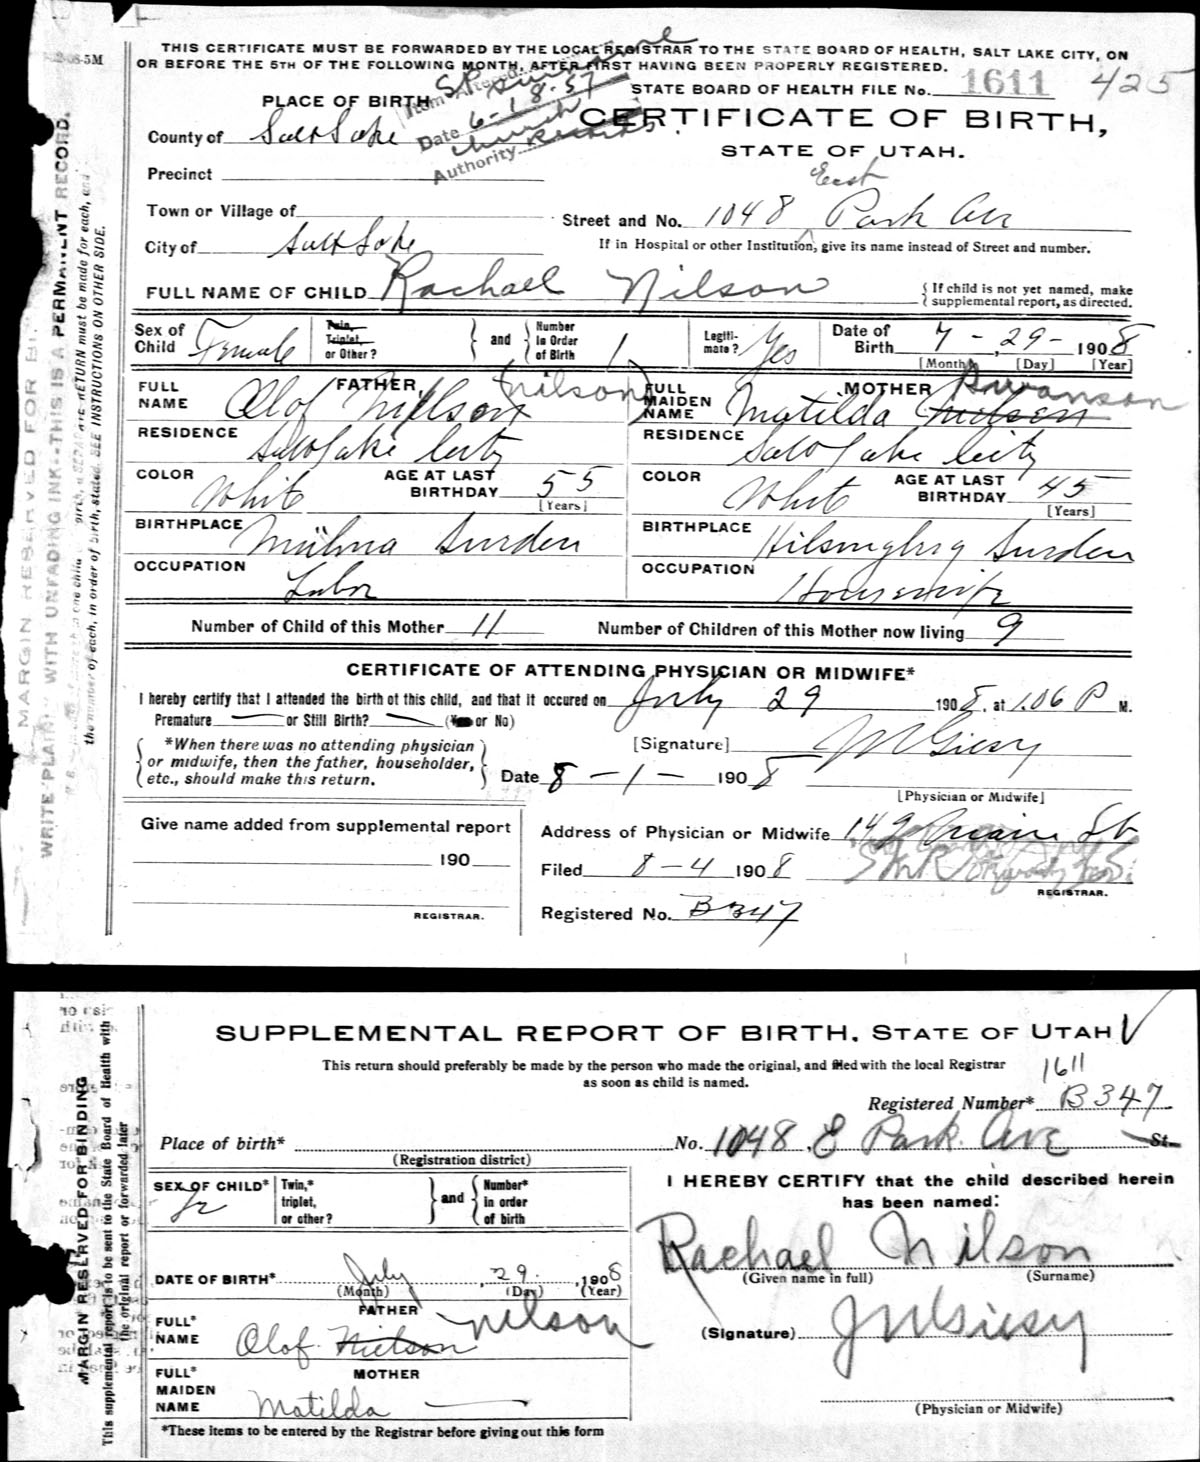 THIS CERTIFICATE MUST BE FORWARDED BY THE LOCAL REGISTRAR TO THE STATE BOARD OF HEALTH, SALT LAKE CITY, ON
OR BEFORE THE 5TH OF THE FOLLOWING MONTH, AFTER FIRST HAVING BEEN PROPERLY REGISTERED.
STATE BOARD OF HEALTH FILE No. 1611 425
PLACE OF BIRTH
Item Altered
Date 6-18-57
Authority Church Records
CERTIFICATE OF BIRTH,
STATE OF UTAH.
County of Salt Lake
Precinct
Town or Village of
East
Street and No. 1048 Park Ave
City of Salt Lake
If in Hospital or other Institution, give its name instead of Street and number.
FULL NAME OF CHILD Rachael Nilson
If child is not yet named, make
supplemental report, as directed.
Sex of Child Female
Twin, Triplet, or Other?
and
Number in Order of Birth 1
Legitimate? Yes
Date of Birth 7 - 29 - 1908
[Month] [Day] [Year]
FULL NAME FATHER Olof Nielson Nilson
FULL MAIDEN NAME MOTHER Matilda Nilson Swanson
RESIDENCE Salt Lake City
RESIDENCE Salt Lake City
COLOR White AGE AT LAST BIRTHDAY 55 [Years]
COLOR White AGE AT LAST BIRTHDAY 45 [Years]
BIRTHPLACE Sweden
BIRTHPLACE Sweden
OCCUPATION Labor
OCCUPATION Housewife
Number of Child of this Mother 11 Number of Children of this Mother now living 9
CERTIFICATE OF ATTENDING PHYSICIAN OR MIDWIFE*
I hereby certify that I attended the birth of this child, and that it occured on July 29 1908, at 1.06 P M.
Premature — or Still Birth? — (Yes or No)
*When there was no attending physician
or midwife, then the father, householder,
etc., should make this return.
[Signature] J M Giesy
Date 8 - 1 - 1908
[Physician or Midwife]
Give name added from supplemental report
190
REGISTRAR.
Address of Physician or Midwife 149 Main St
Filed 8 - 4 1908
REGISTRAR.
Registered No. B347
MARGIN RESERVED FOR BINDING
WRITE PLAINLY WITH UNFADING INK--THIS IS A PERMANENT RECORD.
the number of each, in order of birth, stated. SEE INSTRUCTIONS ON OTHER SIDE.
SUPPLEMENTAL REPORT OF BIRTH, STATE OF UTAH
This return should preferably be made by the person who made the original, and filed with the local Registrar
as soon as child is named.
1611
Registered Number* B347
Place of birth* No. 1048 E Park Ave St.
(Registration district)
SEX OF CHILD*
Twin,* triplet, or other?
and
Number* in order of birth
I HEREBY CERTIFY that the child described herein
has been named:
Rachael Nilson
(Given name in full) (Surname)
DATE OF BIRTH* July 29 1908
(Month) (Day) (Year)
FATHER
FULL* NAME Olof Nielson Nilson
(Signature) J M Giesy
MOTHER
FULL* MAIDEN NAME Matilda —
(Physician or Midwife)
*These items to be entered by the Registrar before giving out this form
MARGIN RESERVED FOR BINDING
This supplemental report is to be sent to the State Board of Health with
the original report or forwarded later